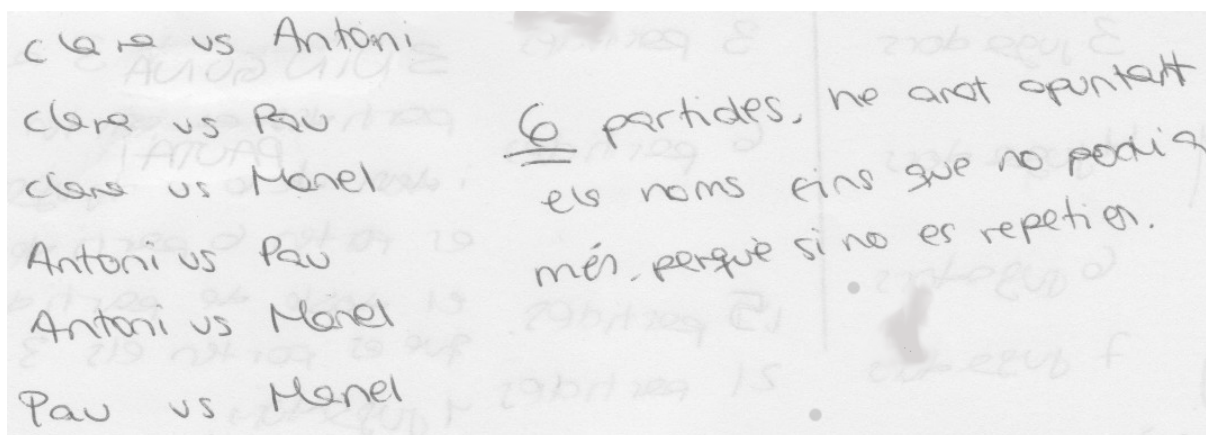 Clara vs Antoni
Clara vs Pau
Clara vs Manel
Antoni vs Pau
Antoni vs Manel
Pau vs Manel
6 partides, he anat apuntant
els noms fins que no podia
més, perquè si no es repetien.